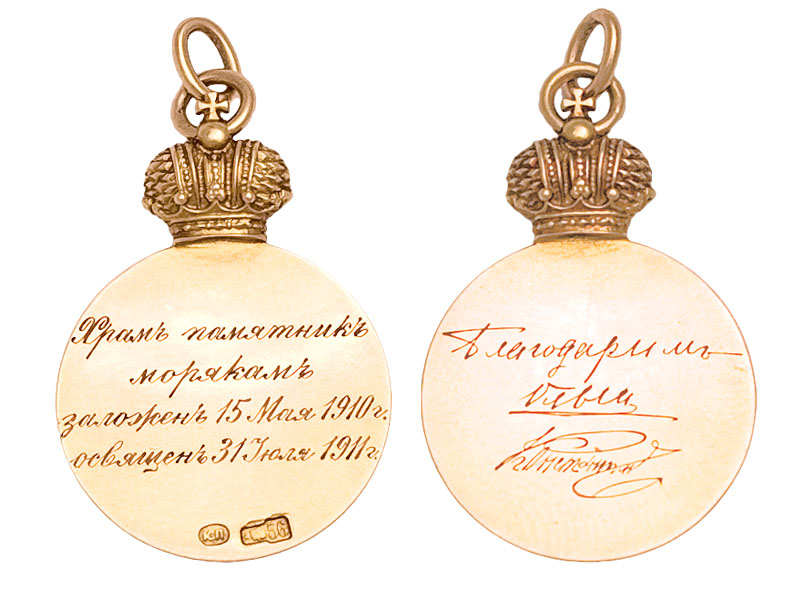 Храмъ памятникъ
морякамъ
заложенъ 15 Мая 1910 г.
освященъ 31 Іюля 1911 г.
56
Благодаримъ
Ольга